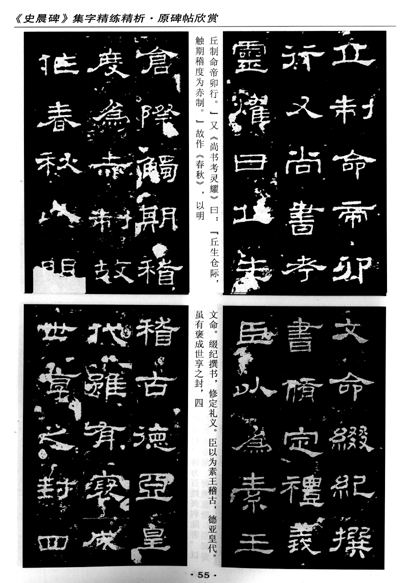 《史晨碑》集字精练精析·原碑帖欣赏
丘制命帝卯
行又尚書考
靈燿曰丘生
丘制命帝卯行。」又《尚书考灵耀》曰:「丘生仓际,
触期稽度为赤制。」故作《春秋》,以明
倉際觸期稽
度為赤制故
作春秋以明
文命綴紀撰
書脩定禮義
臣以為素王
文命。缀纪撰书,修定礼义。臣以为素王稽古,德亚皇代。
虽有褒成世享之封,四
稽古德亞皇
代雖有褒成
世享之封四
·55·